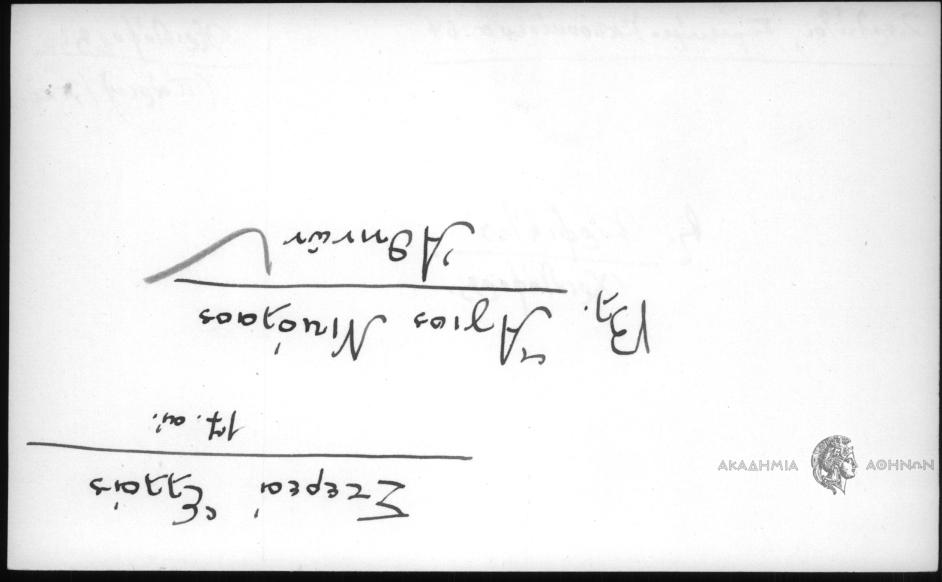 Στερεὰ Ἑλλάς
17. αἰ.
Βλ. Ἅγιος Νικόλαος
Ἀθηνῶν
ΑΚΑΔΗΜΙΑ ΑΘΗΝΩΝ